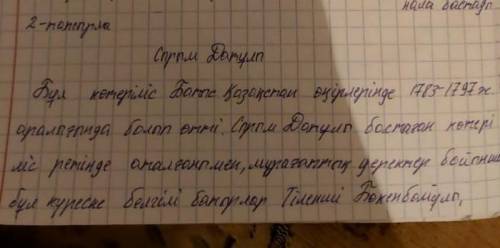 нала бастады
2-тапсырма
Сырым Датұлы
Бұл көтеріліс Батыс Қазақстан өңірлерінде 1783-1797 ж
аралығында болып өтті. Сырым Датұлы бастаған көтері
ліс ретінде аталғанымен, мұрағаттық деректер бойынша
бұл күреске белгілі батырлар Тіленші Бөкенбайұлы,